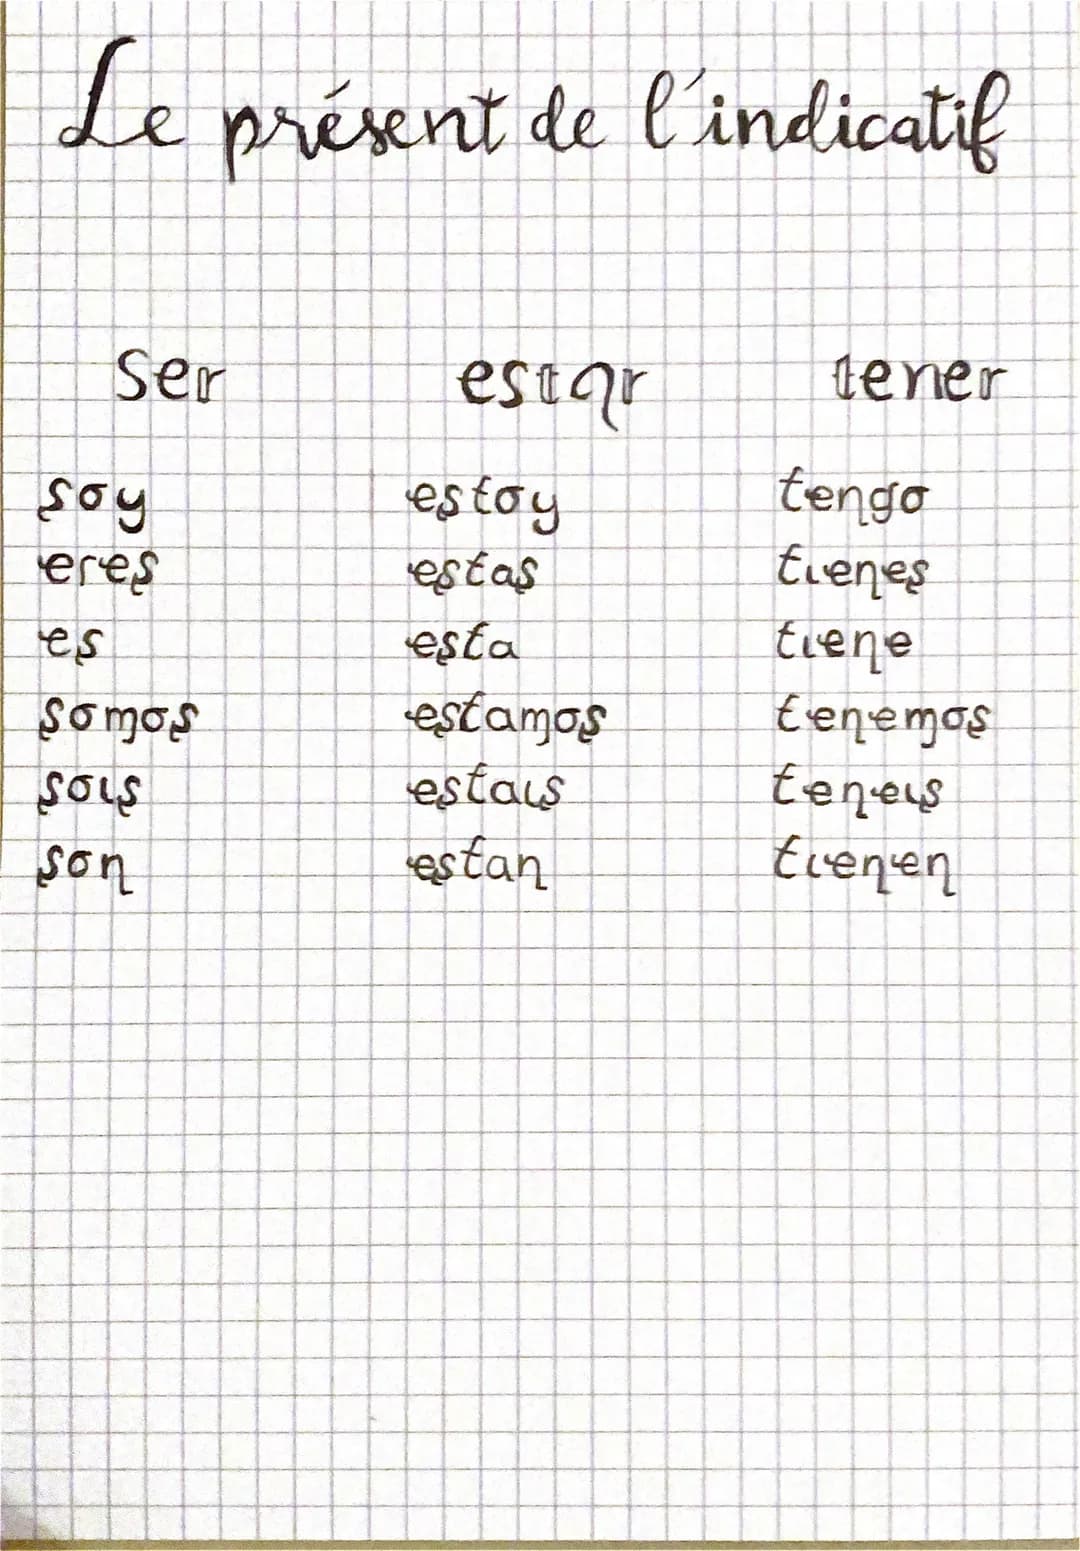 Le présent de l'indicatif
ser estar tener
soy estoy tengo
eres estas tienes
es esta tiene
somos estamos tenemos
sois estais teneis
son estan tienen